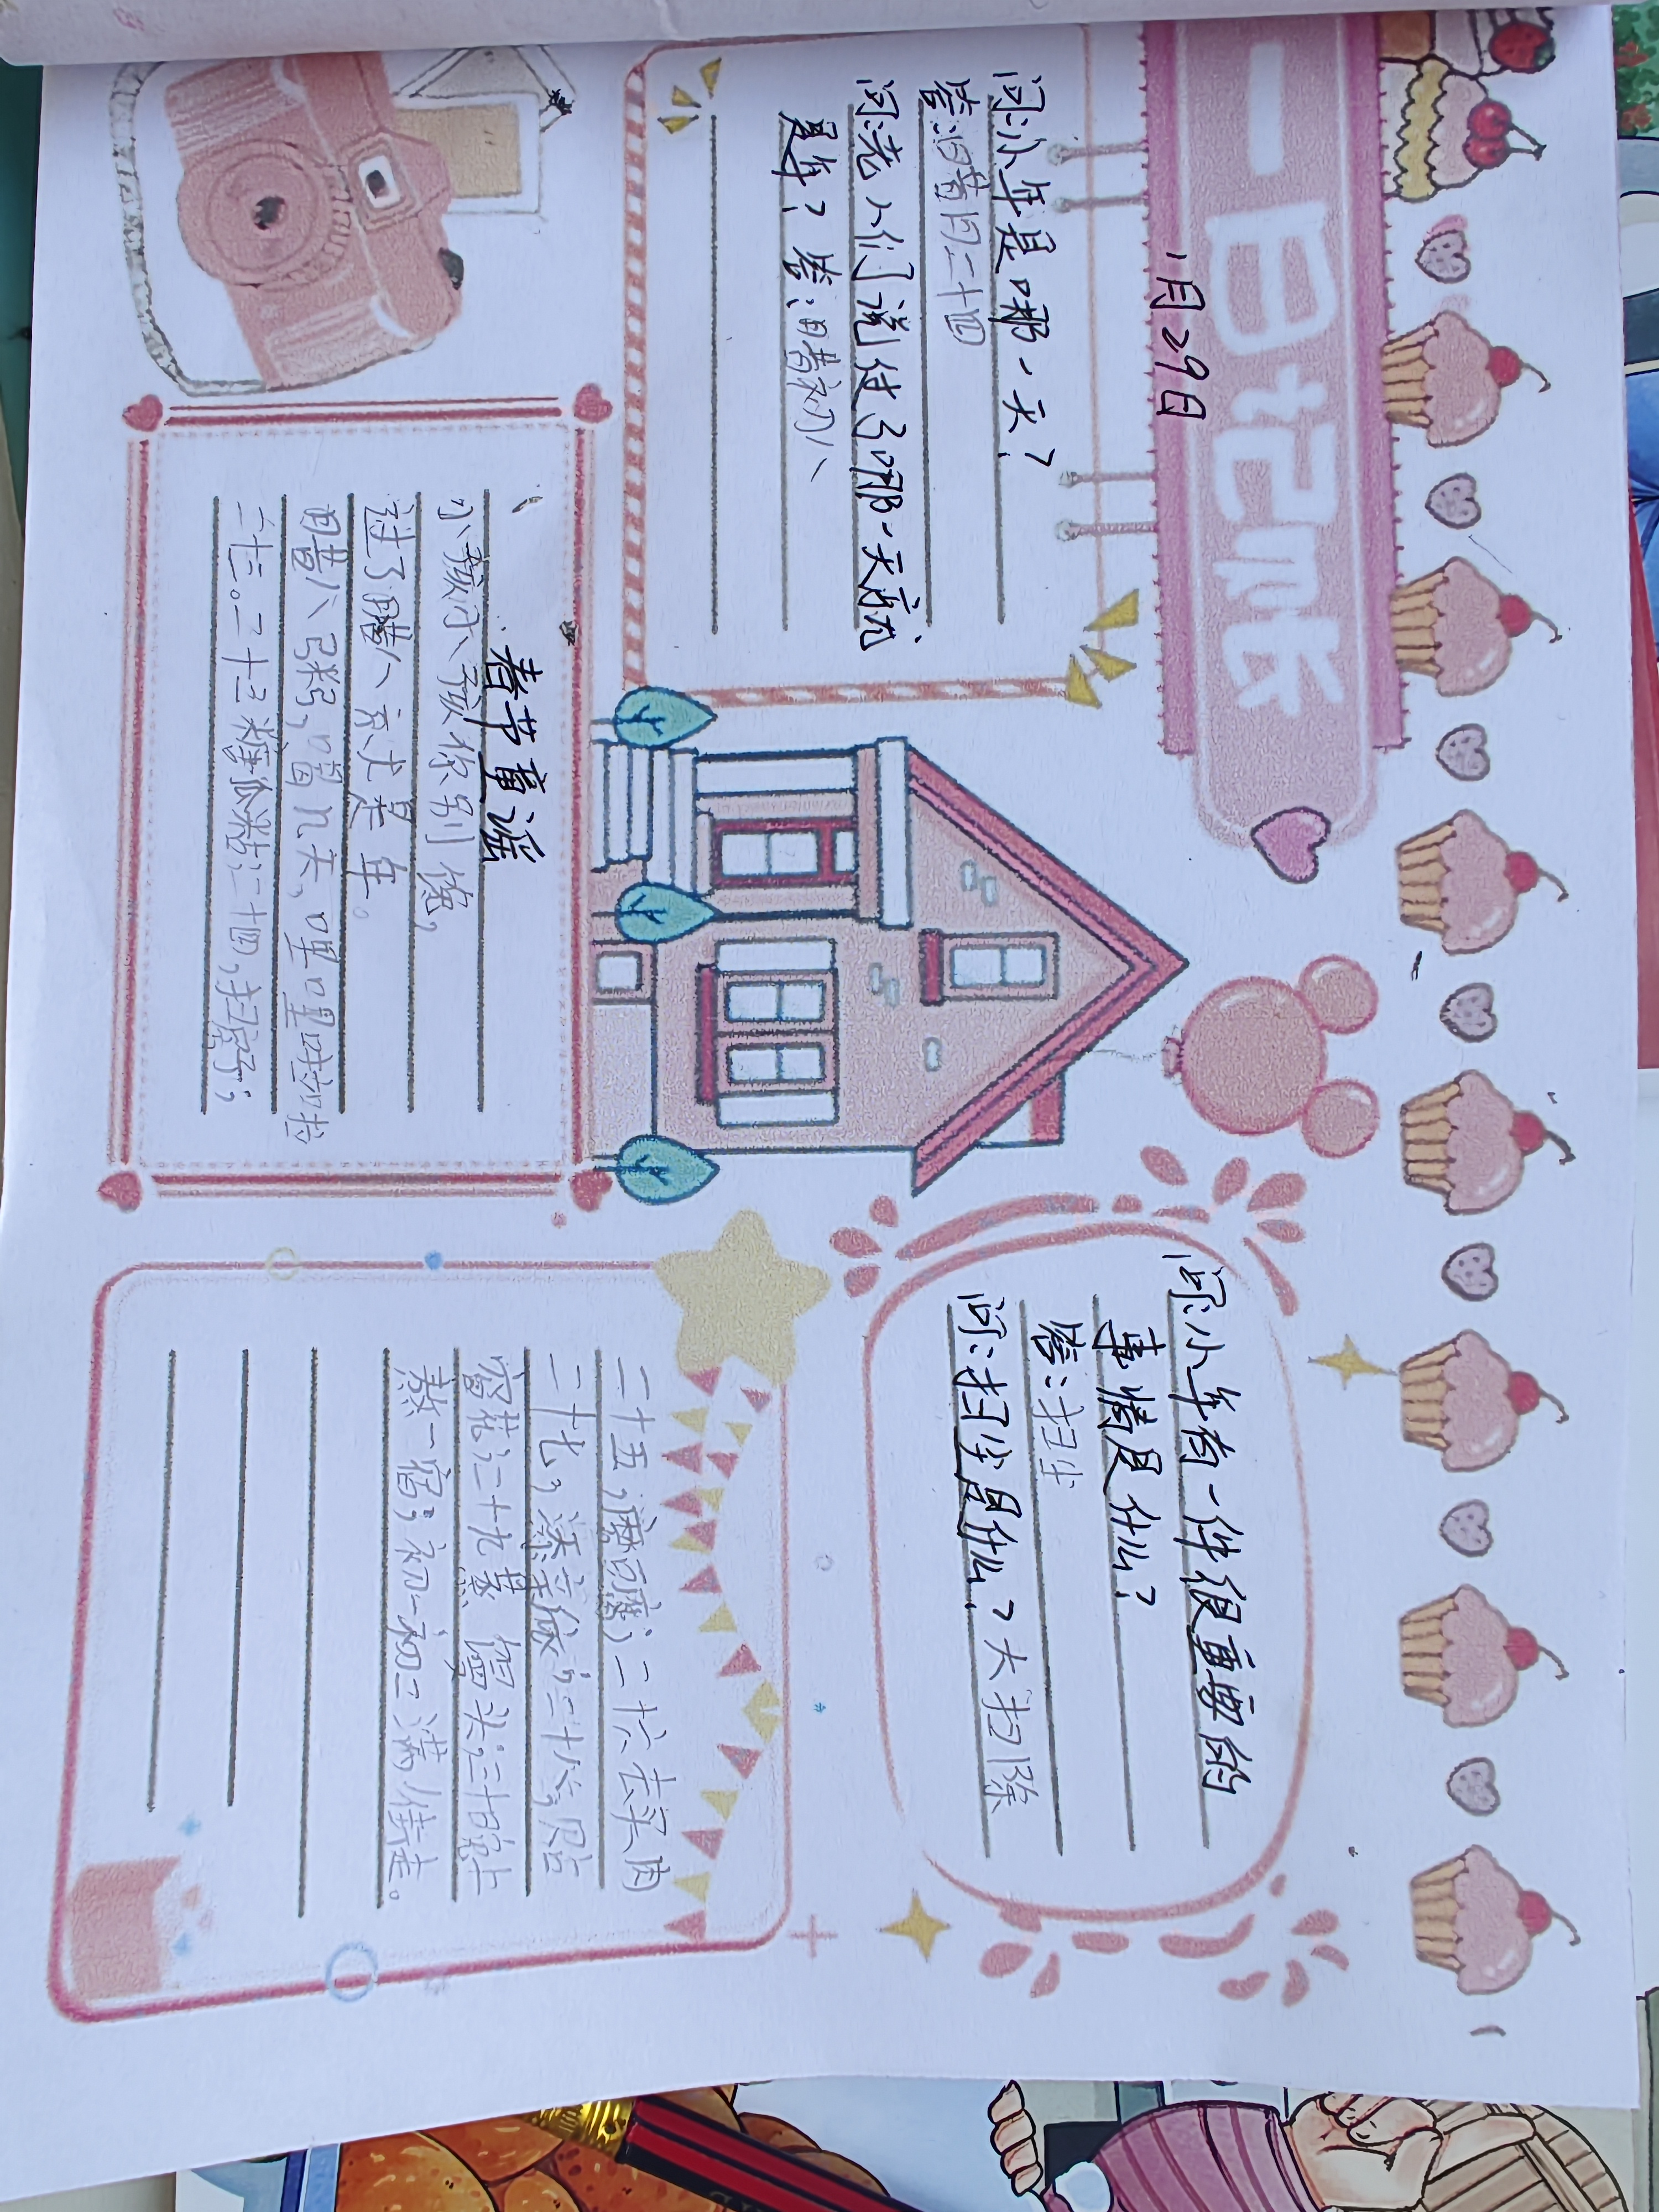 一日记忆
1月29日
问:小年是哪一天?
答:日昔月二十四
问:老人们说过了哪一天就
是年? 答:日昔初八
问:小年有一件很重要的
事情是什么?
答:扫尘
问:扫尘是什么?大扫除
春节童谣
小孩小孩你别馋,
过了腊八就是年。
腊八粥,喝几天,哩哩啦啦
二十三。二十三糖瓜粘;二十四,扫房子;
二十五,磨豆腐;二十六去买肉
二十七,
窗花;二十九蒸馒头;三十日晚上
熬一宿;初一初二满街走。